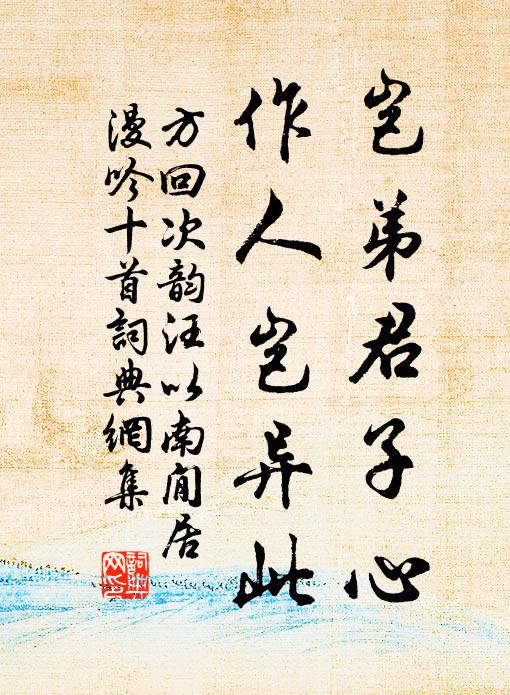 岂弟君子心
作人岂异此
方回次韵汪以南闲居
漫吟十首詞典網集